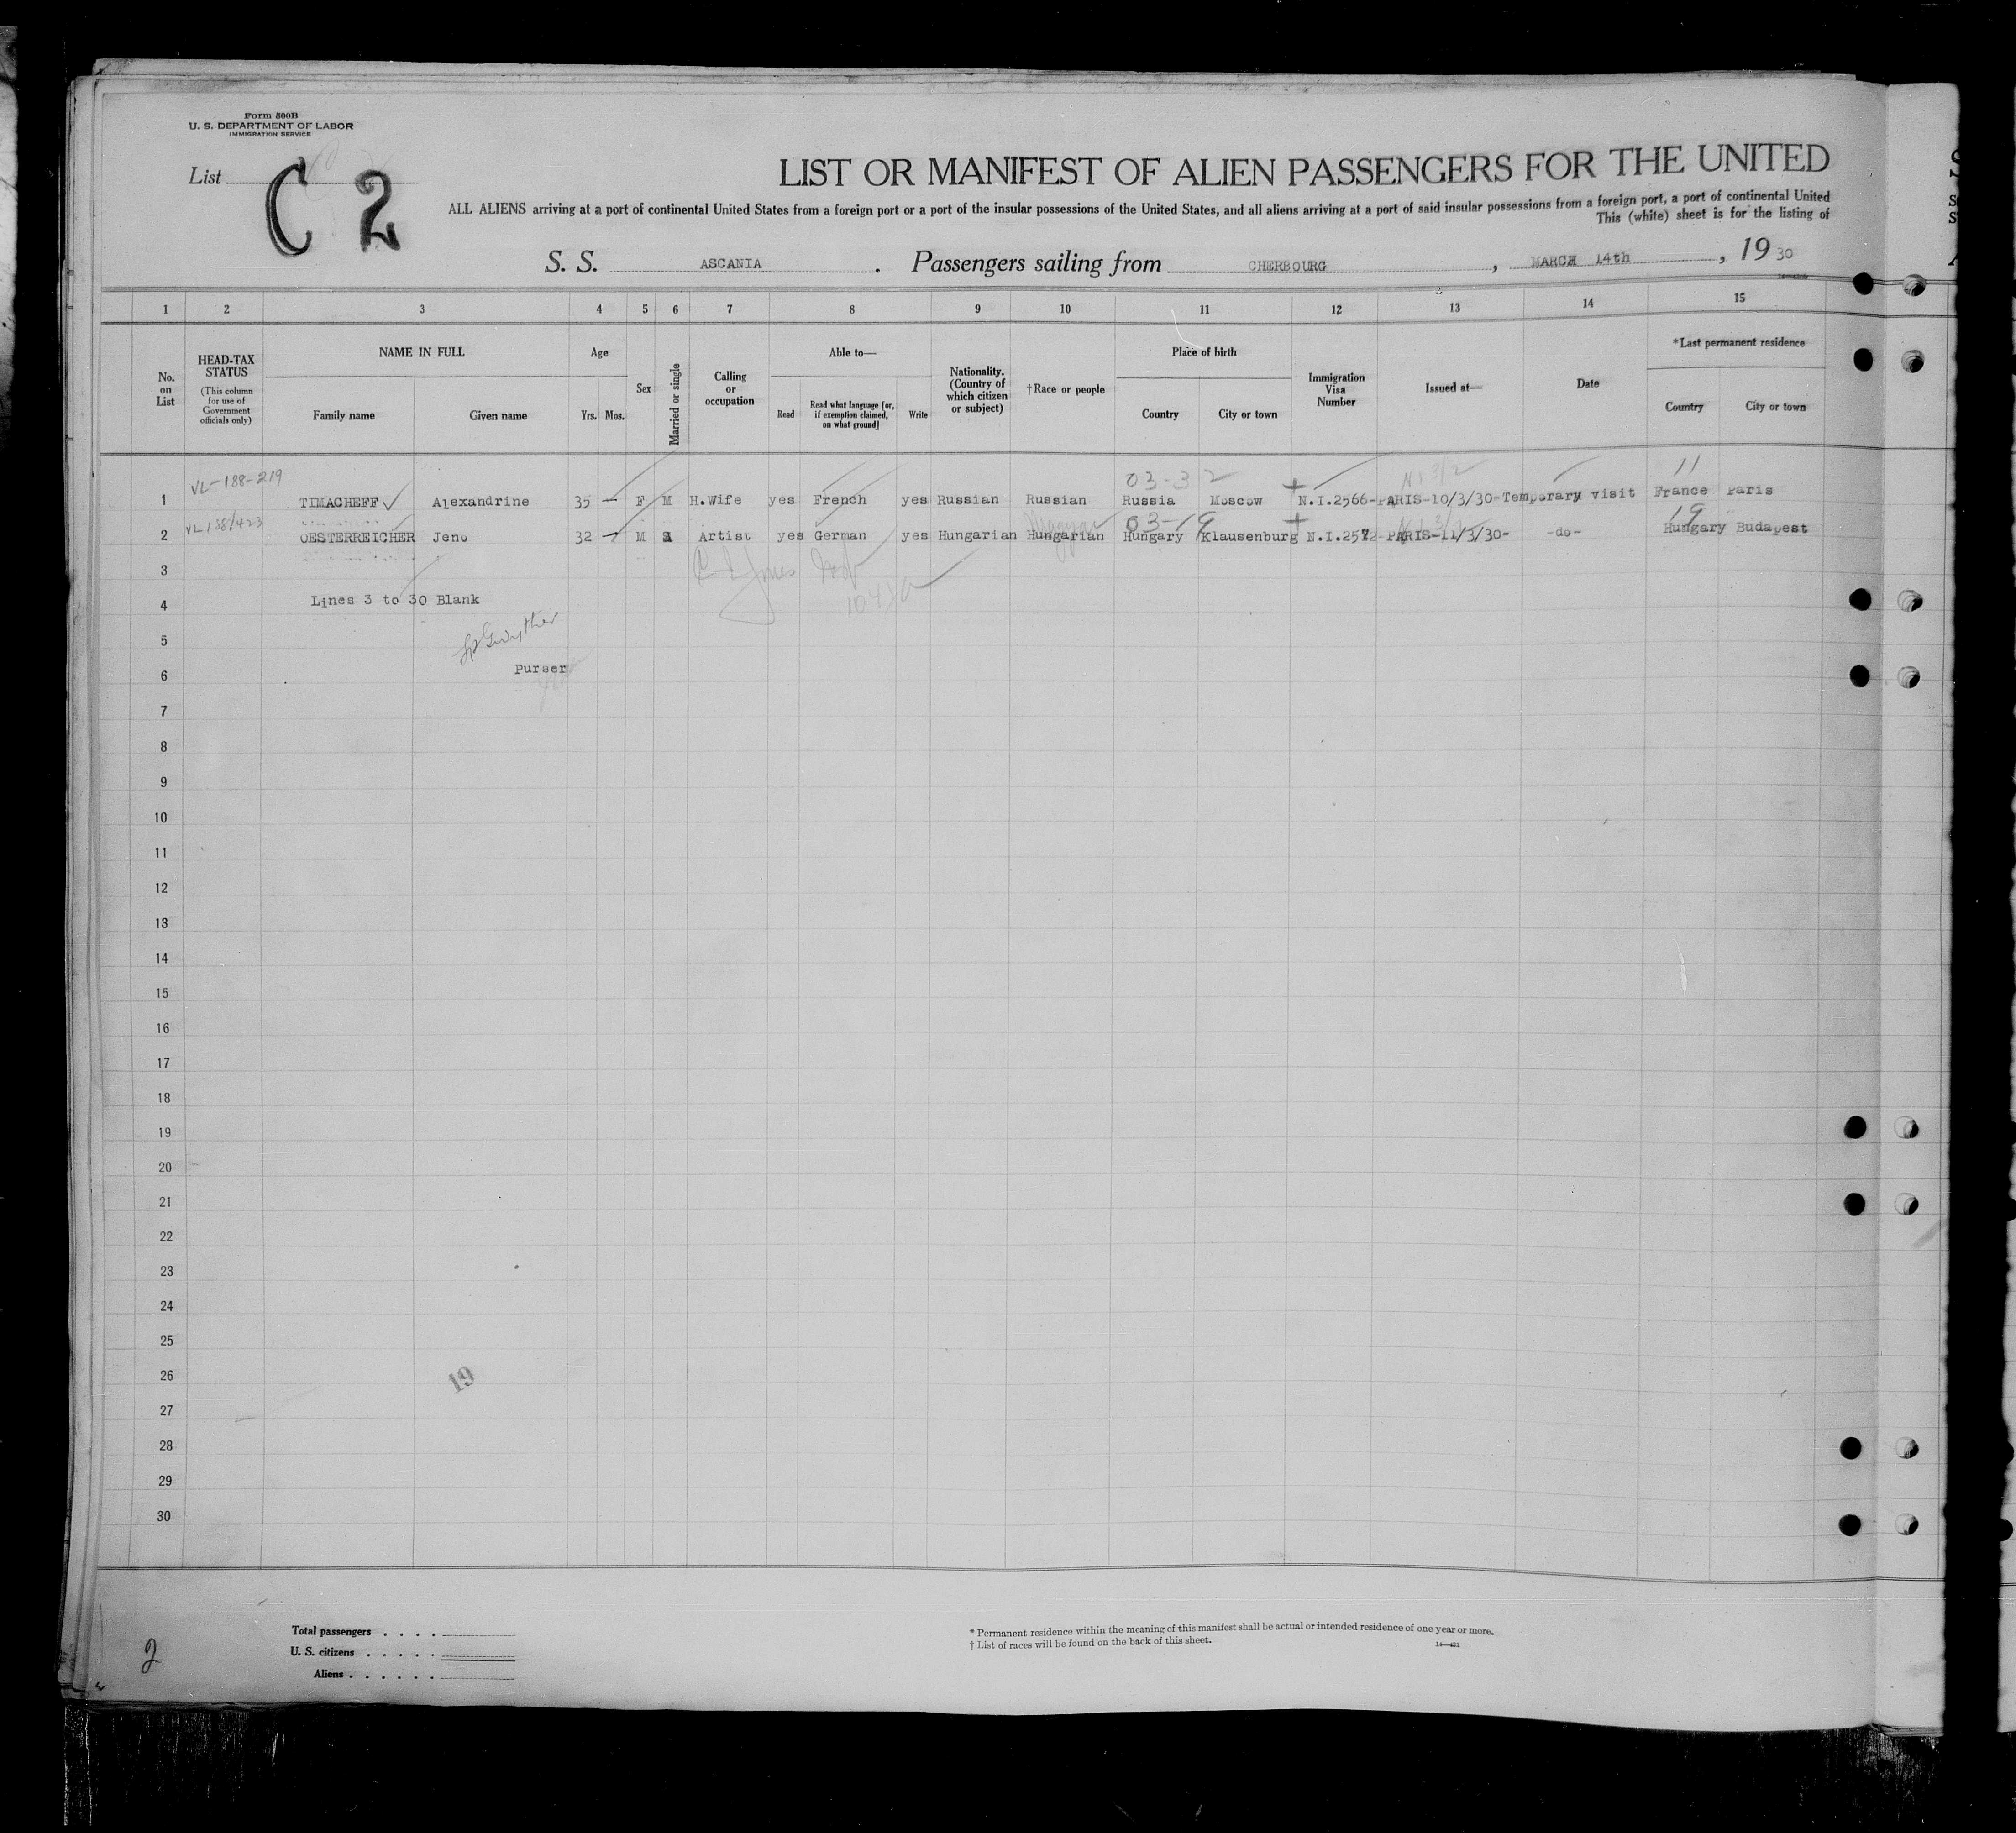 Form 500B
U. S. DEPARTMENT OF LABOR
IMMIGRATION SERVICE
List C 2
LIST OR MANIFEST OF ALIEN PASSENGERS FOR THE UNITED
ALL ALIENS arriving at a port of continental United States from a foreign port or a port of the insular possessions of the United States, and all aliens arriving at a port of said insular possessions from a foreign port, a port of continental United
This (white) sheet is for the listing of
S. S. ASCANIA . Passengers sailing from CHERBOURG , MARCH 14th , 19 30
1 2 3 4 5 6 7 8 9 10 11 12 13 14 15
No. on List
HEAD-TAX STATUS
(This column for use of Government officials only)
NAME IN FULL
Family name Given name
Age
Yrs. Mos.
Sex
Married or single
Calling or occupation
Able to—
Read
Read what language [or, if exemption claimed, on what ground]
Write
Nationality. (Country of which citizen or subject)
†Race or people
Place of birth
Country City or town
Immigration Visa Number
Issued at—
Date
*Last permanent residence
Country City or town
VL-188-219 03-32 11
1 TIMACHEFF Alexandrine 35 — F M H.Wife yes French yes Russian Russian Russia Moscow N.I.2566-PARIS-10/3/30-Temporary visit France Paris
VL 188/423 Magyar 03-19 19
2 OESTERREICHER Jeno 32 — M Artist yes German yes Hungarian Hungarian Hungary Klausenburg N.I.2572-PARIS-11/3/30- -do- Hungary Budapest
3
Lines 3 to 30 Blank
4
5
Purser
6
7
8
9
10
11
12
13
14
15
16
17
18
19
20
21
22
23
24
25
26
19
27
28
29
30
Total passengers . . . .
U. S. citizens . . . . .
Aliens . . . . . .
* Permanent residence within the meaning of this manifest shall be actual or intended residence of one year or more.
† List of races will be found on the back of this sheet.
2